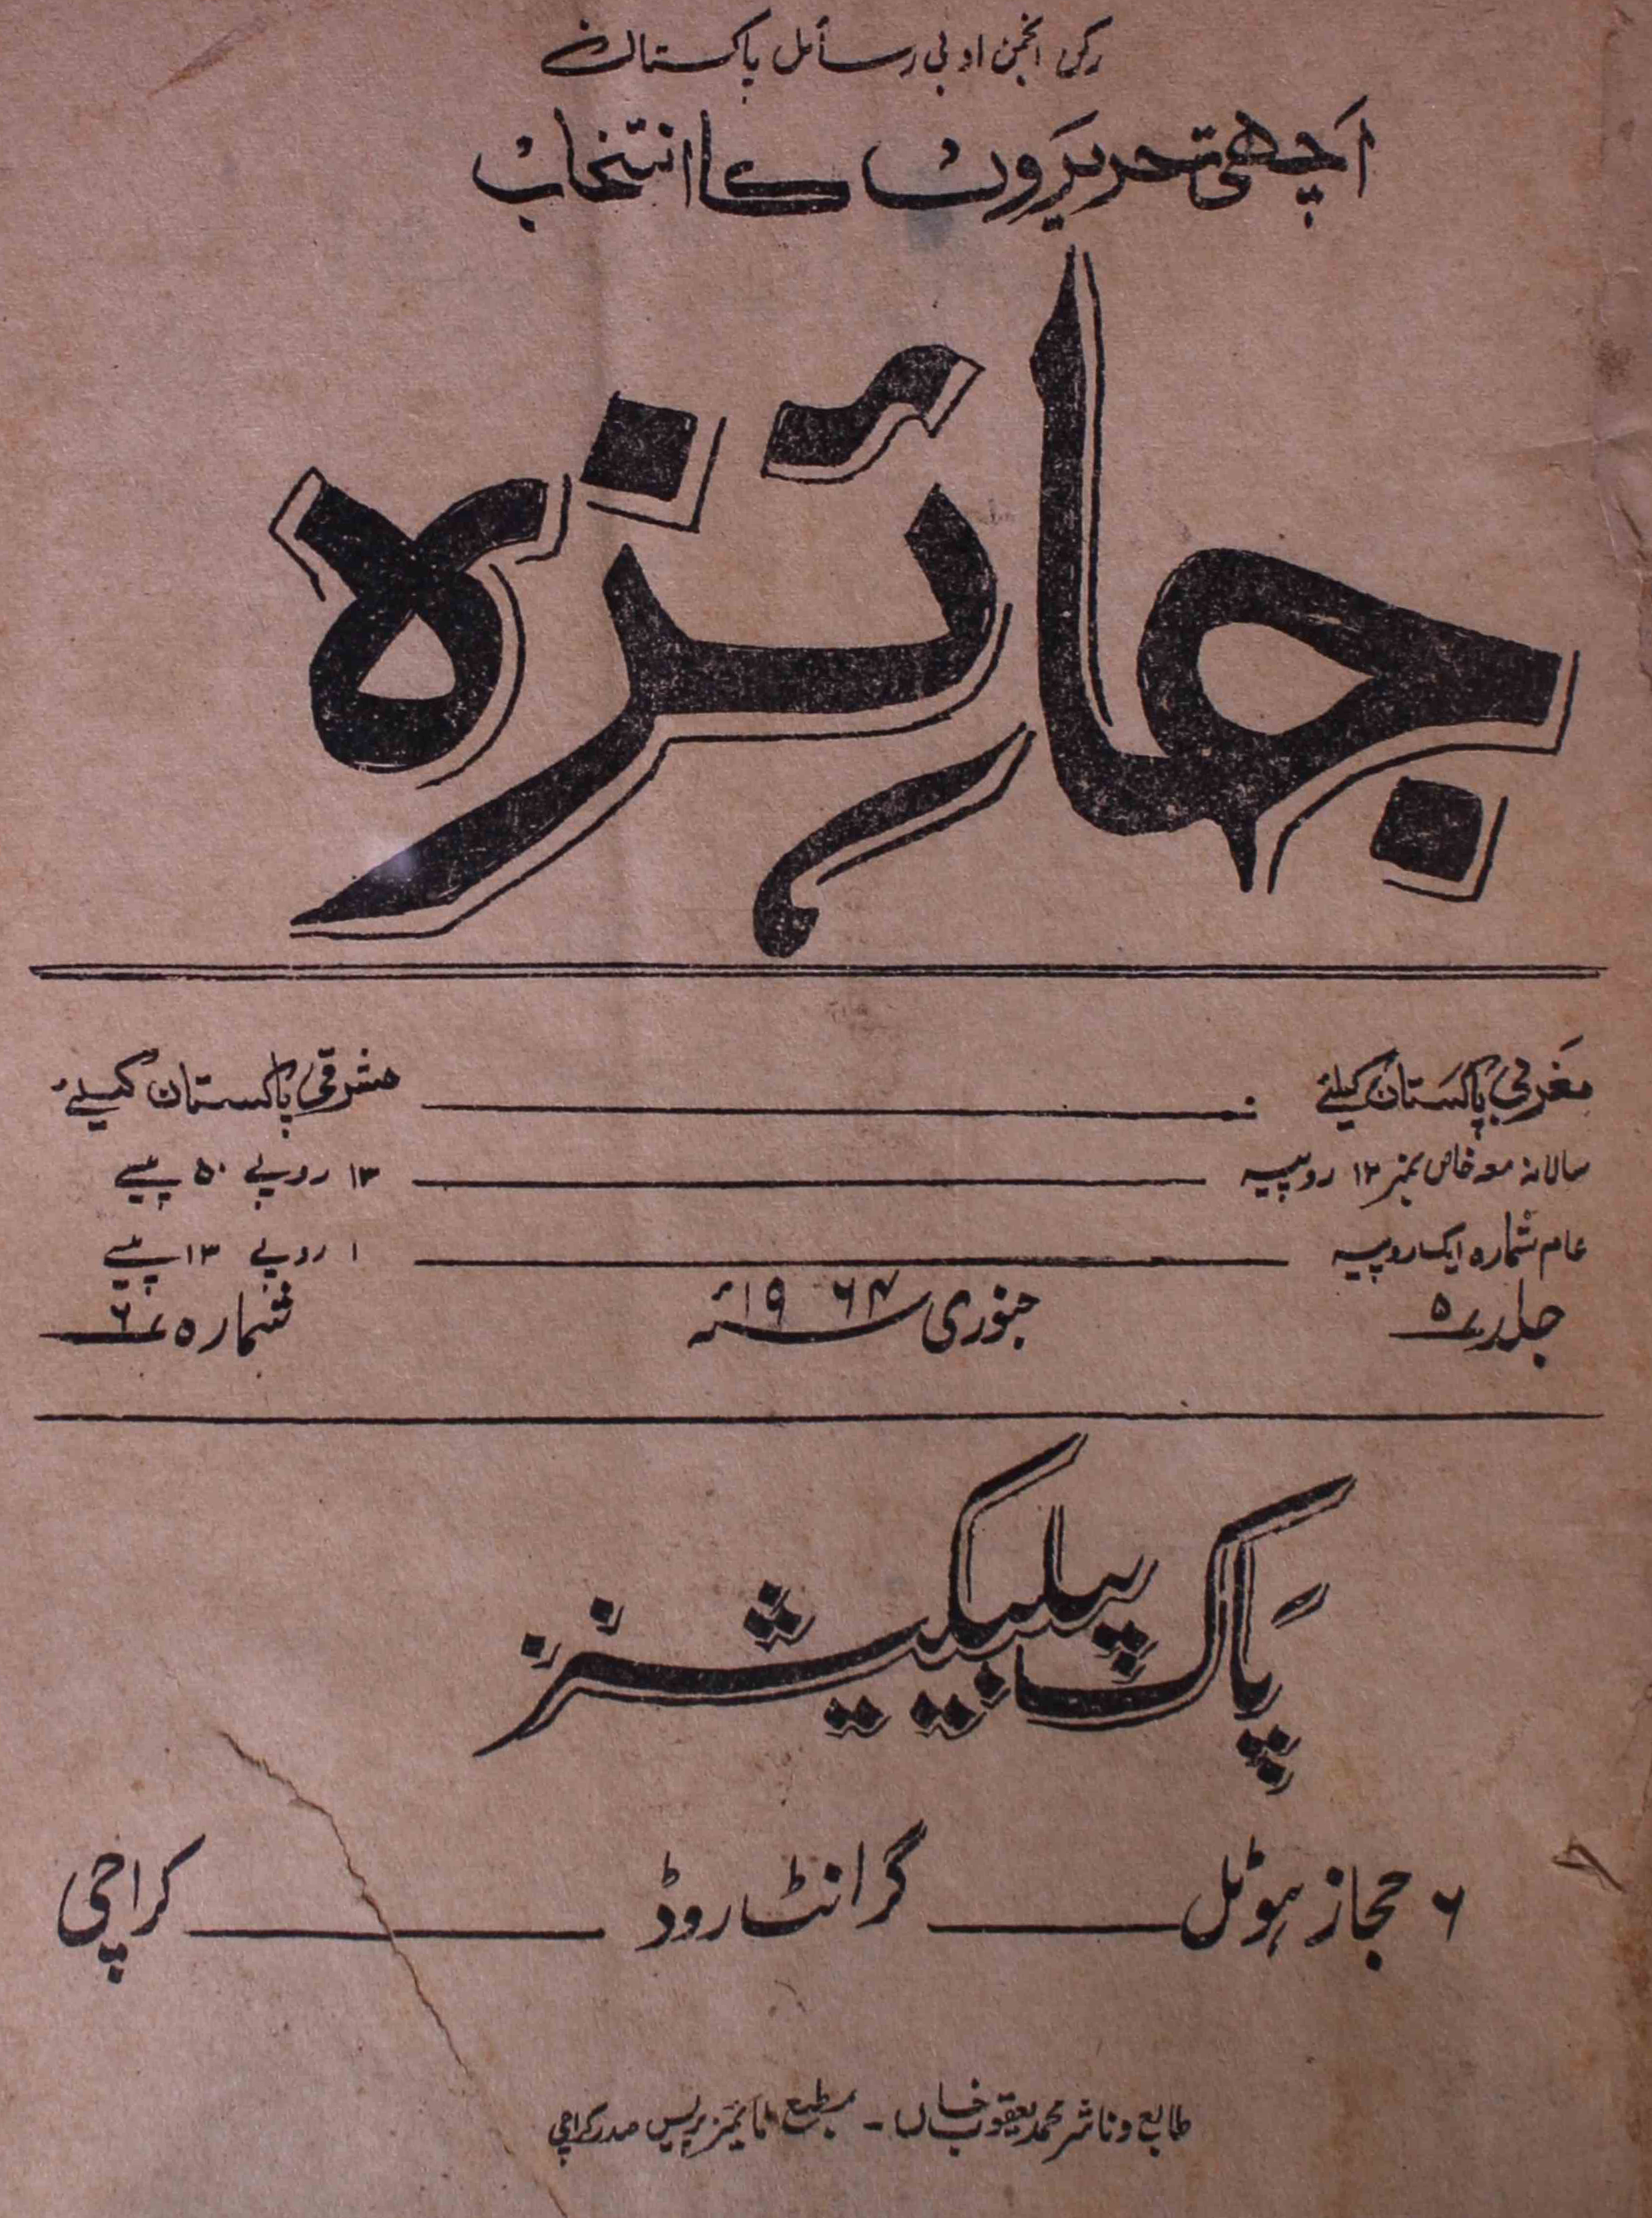 رکن انجمن ادبی رسائل پاکستان
اچھی تحریروں کا انتخاب
جائزہ
مغربی پاکستان کیلئے : ــــــ مشرقی پاکستان کیلئے
سالانہ معہ خاص نمبر ۱۲ روپیہ ــــــ ۱۳ روپے ۵۰ پیسے
عام شمارہ ایک روپیہ ــــــ ۱ روپے ۱۳ پیسے
جلد ۵ جنوری ۱۹۶۴ء شمارہ ۶
پاک پبلیکیشنز
۶ حجاز ہوٹل ــــــ گرانٹ روڈ ــــــ کراچی
طابع و ناشر محمد یعقوب خاں ـ مطبع ٹائمز پریس صدر کراچی